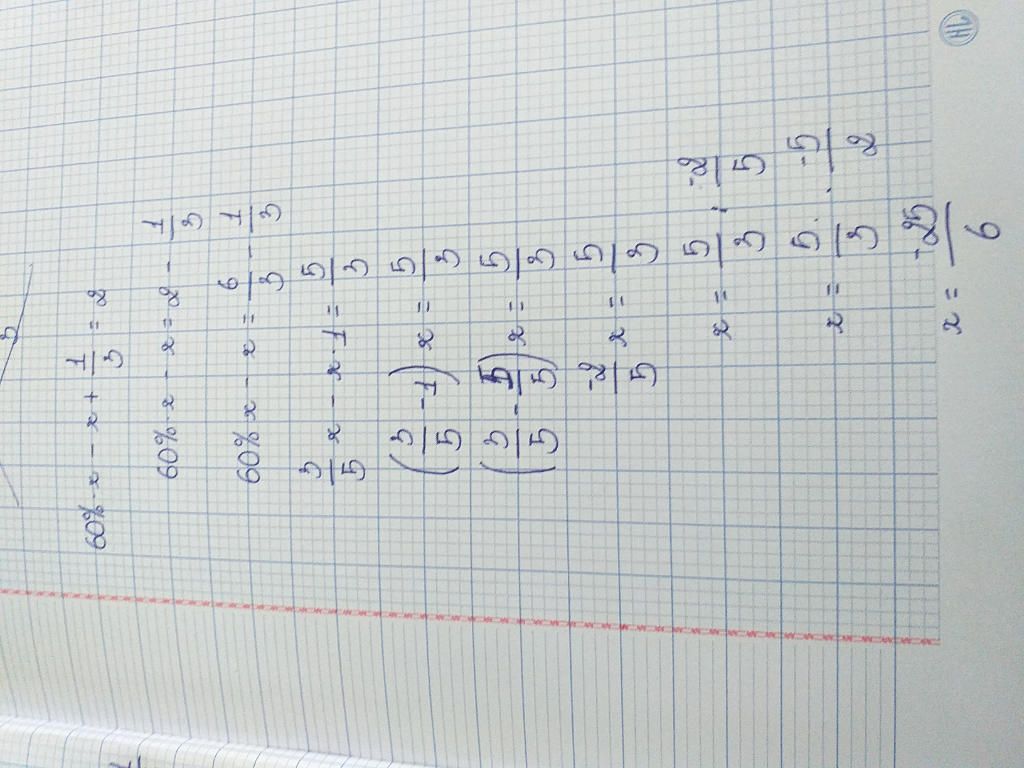 60% · x - x + 1/3 = 2
60% · x - x = 2 - 1/3
60% x - x = 6/3 - 1/3
3/5 x - x · 1 = 5/3
(3/5 - 1) x = 5/3
(3/5 - 5/5) x = 5/3
-2/5 x = 5/3
x = 5/3 : -2/5
x = 5/3 · -5/2
x = -25/6